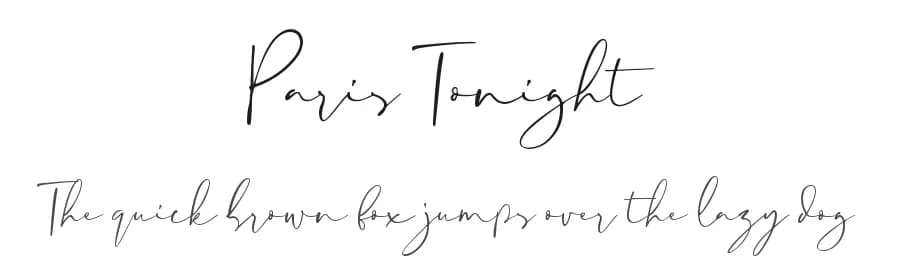 Paris Tonight
The quick brown fox jumps over the lazy dog